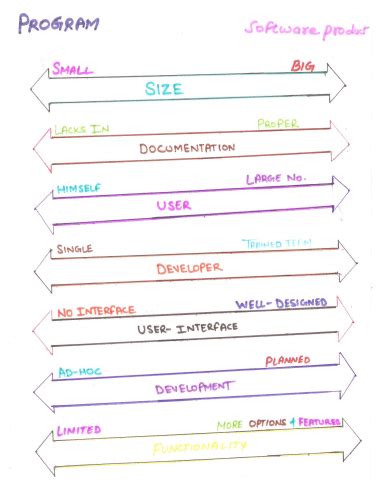 PROGRAM Software product
SMALL BIG
SIZE
LACKS IN PROPER
DOCUMENTATION
HIMSELF LARGE NO.
USER
SINGLE TRAINED TEEM
DEVELOPER
NO INTERFACE WELL-DESIGNED
USER-INTERFACE
AD-HOC PLANNED
DEVELOPMENT
LIMITED MORE OPTIONS & FEATURES
FUNCTIONALITY